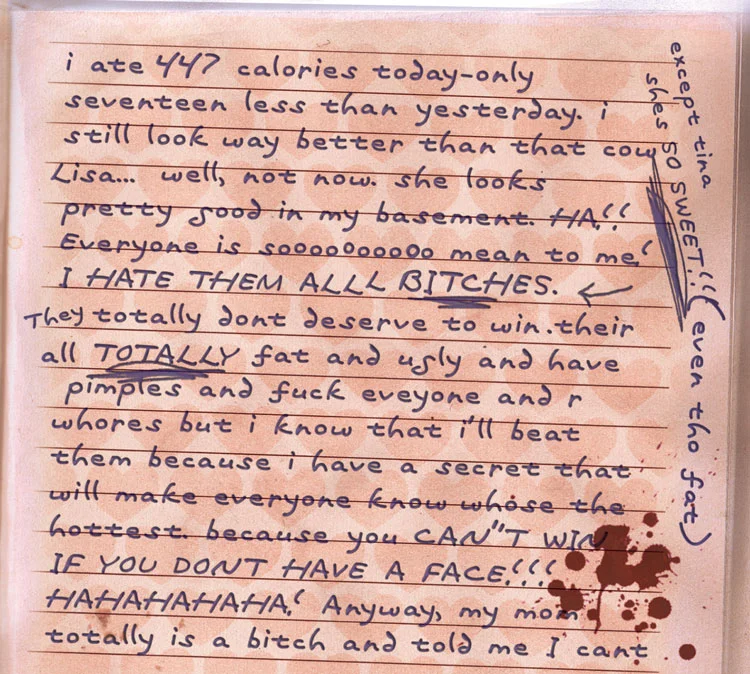 i ate 447 calories today-only
seventeen less than yesterday. i
still look way better than that cow
Lisa... well, not now. she looks
pretty good in my basement. HA!!
Everyone is soooooooooo mean to me!
I HATE THEM ALLL BITCHES.
They totally dont deserve to win.their
all TOTALLY fat and ugly and have
pimples and fuck eveyone and r
whores but i know that i'll beat
them because i have a secret that
will make everyone know whose the
hottest. because you CAN"T WIN
IF YOU DONT HAVE A FACE!!!
HAHAHAHAHA! Anyway, my mom
totally is a bitch and told me I cant
except tina
shes SO SWEET!!! (even tho fat)